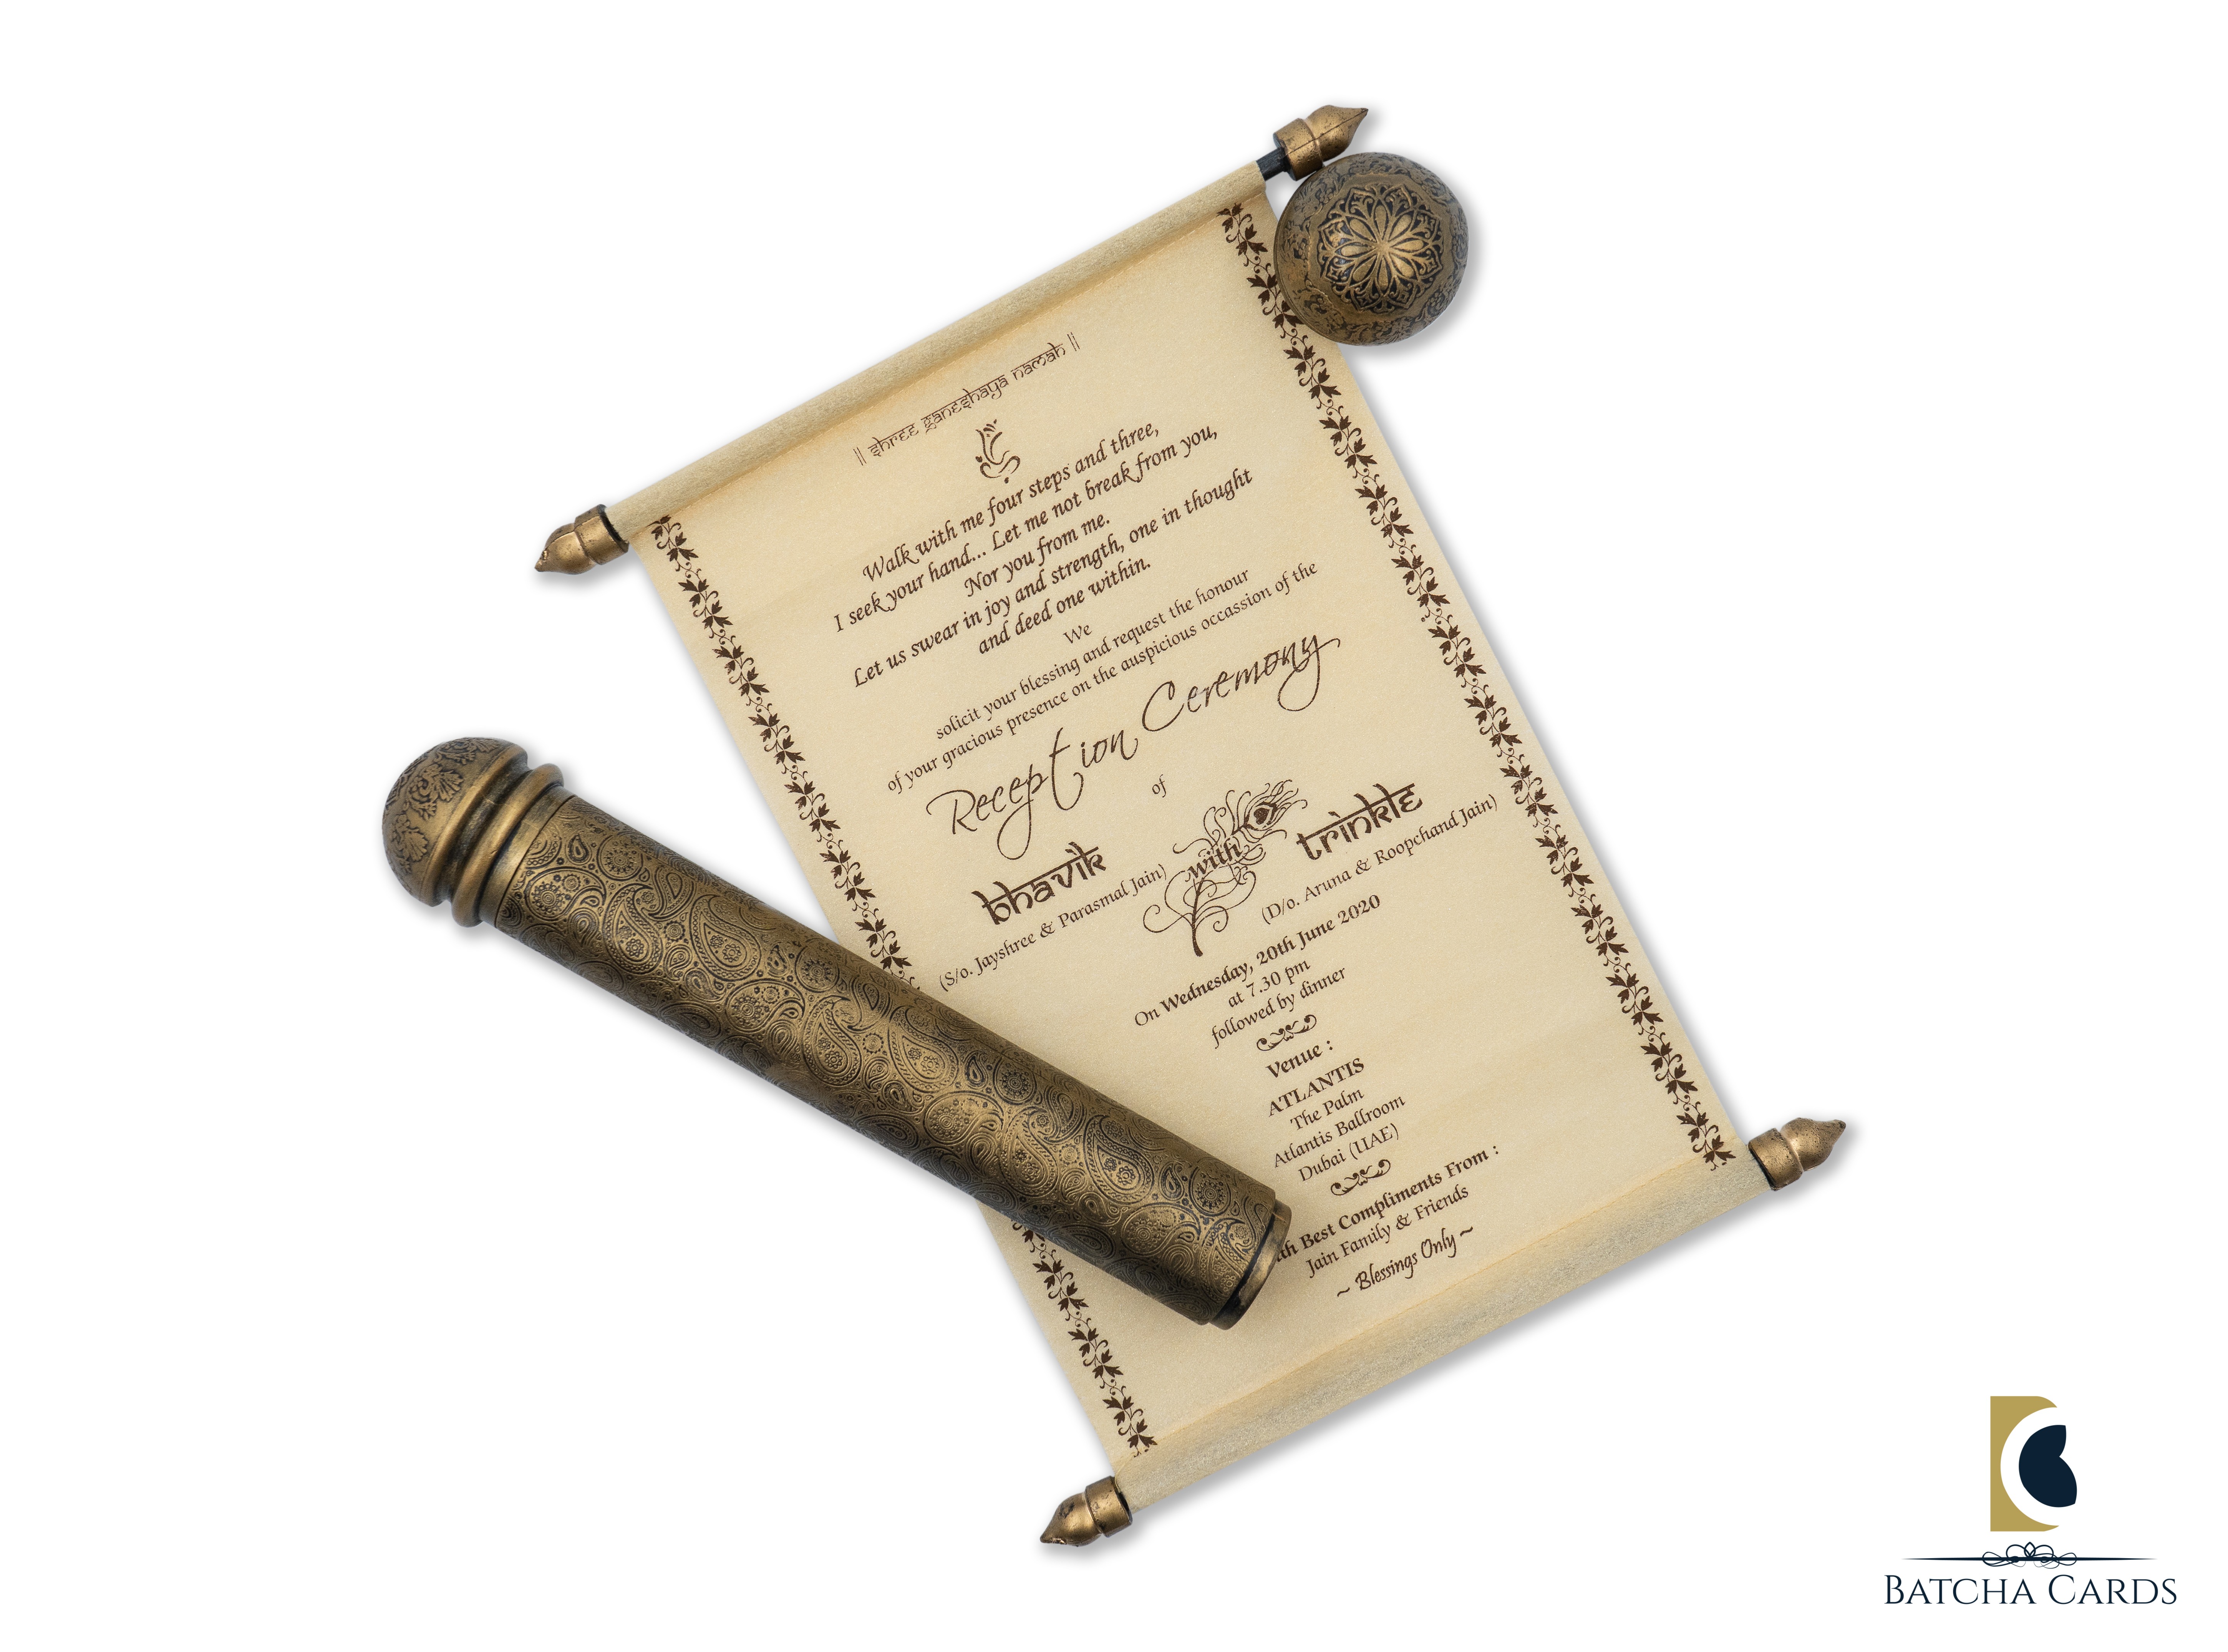 || shree ganeshaya namah ||
Walk with me four steps and three,
I seek your hand... Let me not break from you,
Nor you from me.
Let us swear in joy and strength, one in thought
and deed one within.
We
solicit your blessing and request the honour
of your gracious presence on the auspicious occassion of the
Reception Ceremony
of
bhavik
(S/o. Jayshree & Parasmal Jain)
with
trinkle
(D/o. Aruna & Roopchand Jain)
On Wednesday, 20th June 2020
at 7.30 pm
followed by dinner
Venue :
ATLANTIS
The Palm
Atlantis Ballroom
Dubai (UAE)
Best Compliments From :
Jain Family & Friends
~ Blessings Only ~
BATCHA CARDS